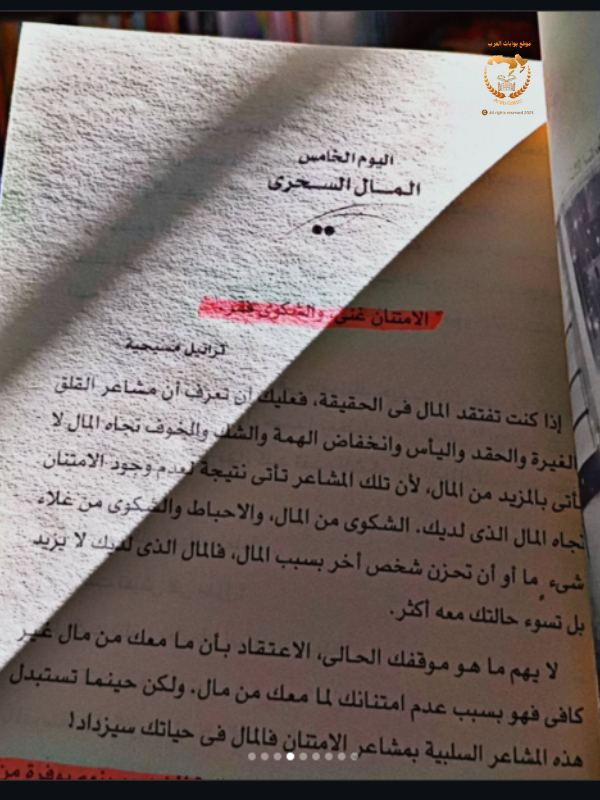 موقع بوابات العرب
Arab Gates
© All rights reserved 2025
اليوم الخامس
المــال السـحرى
الامتنان غنى، والشكوى فقر..
ترانيل مسيحية
إذا كنت تفتقد المال فى الحقيقة، فعليك أن تعرف أن مشاعر القلق
الغيرة والحقد واليأس وانخفاض الهمة والشك والخوف تجاه المال لا
تأتى بالمزيد من المال، لأن تلك المشاعر تأتى نتيجة لعدم وجود الامتنان
تجاه المال الذى لديك. الشكوى من المال، والاحباط والشكوى من غلاء
شىء ما أو أن تحزن شخص أخر بسبب المال، فالمال الذى لديك لا يزيد
بل تسوء حالتك معه أكثر.
لا يهم ما هو موقفك الحالى، الاعتقاد بأن ما معك من مال غير
كافى فهو بسبب عدم امتنانك لما معك من مال. ولكن حينما تستبدل
هذه المشاعر السلبية بمشاعر الامتنان فالمال فى حياتك سيزداد!
بوفرة من